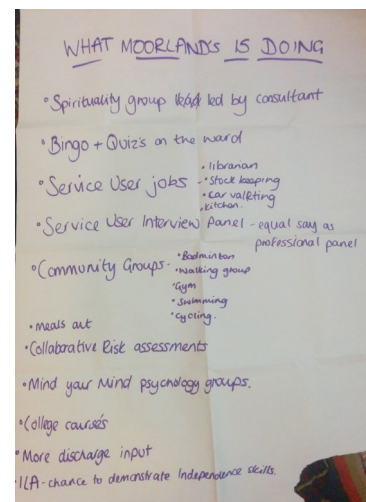 WHAT MOORLAND'S IS DOING
• Spirituality group led by consultant
• Bingo + Quiz's on the ward
• Service User jobs - • librarian
• Stock keeping
• car valeting
• kitchen.
• Service User Interview Panel - equal say as
professional panel
• Community Groups - • Badminton
• walking group
• Gym
• Swimming
• Cycling.
• meals out
• Collaborative Risk assessments
• Mind your Mind psychology groups.
• College courses
• More discharge input
• ILA - chance to demonstrate Independence skills.